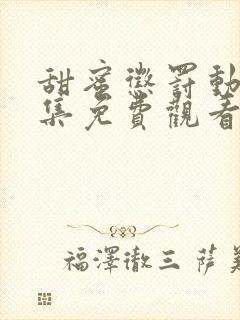 甜蜜懲罰動
集免費觀看
福澤徹三 薩美